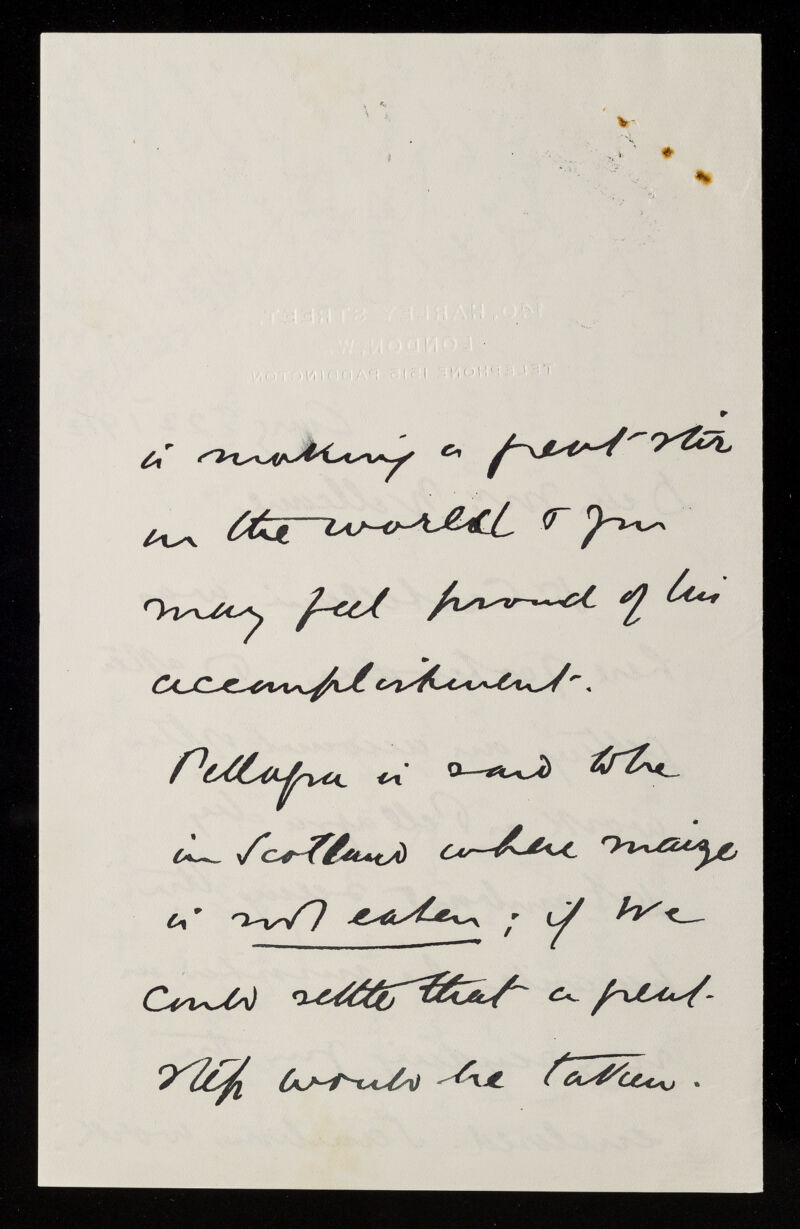 is making a great stir
in the world & you
may feel proud of his
accomplishment.
Pellagra is said to be
in Scotland where maize
is not eaten; if we
could settle that a great
step would be taken.
140, HARLEY STREET,
LONDON, W.
TELEPHONE 1515 PADDINGTON